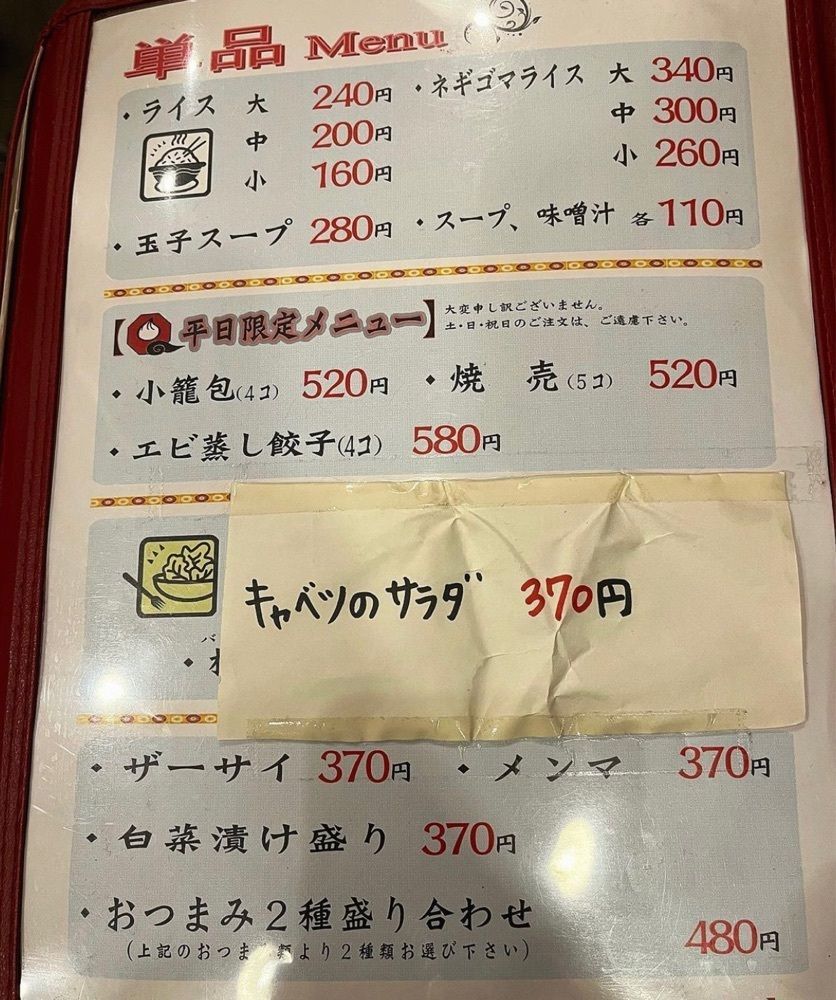 単品 Menu
・ライス 大 240円
中 200円
小 160円
・ネギゴマライス 大 340円
中 300円
小 260円
・玉子スープ 280円
・スープ、味噌汁 各 110円
【平日限定メニュー】
大変申し訳ございません。
土・日・祝日のご注文は、ご遠慮下さい。
・小籠包(4コ) 520円
・焼 売(5コ) 520円
・エビ蒸し餃子(4コ) 580円
キャベツのサラダ 370円
バ
・ザーサイ 370円
・メンマ 370円
・白菜漬け盛り 370円
・おつまみ2種盛り合わせ 480円
(上記のおつま 類より2種類お選び下さい)